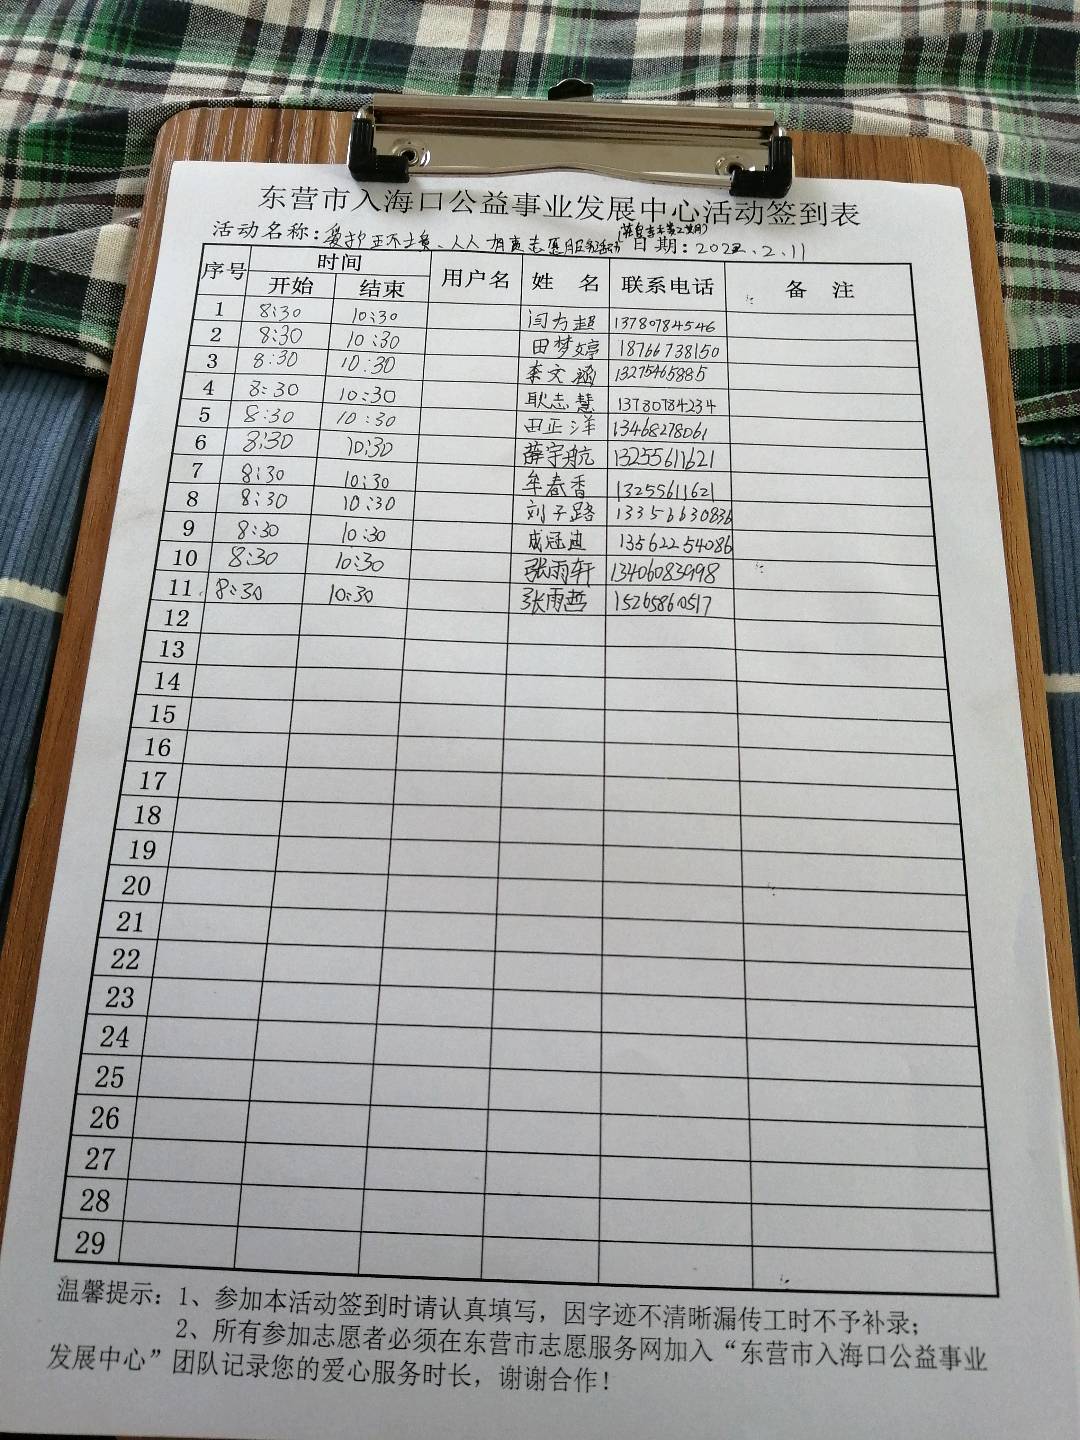 东营市入海口公益事业发展中心活动签到表
活动名称：爱护 环 、人人有责志愿服务活动 日期：2022.2.11
序号 时间 用户名 姓 名 联系电话 备 注
开始 结束
1 8:30 10:30 闫方超 13780784546
2 8:30 10:30 田梦婷 18766738150
3 8:30 10:30 李文涵 13275465885
4 8:30 10:30 耿志慧 13780784234
5 8:30 10:30 田正洋 13468278061
6 8:30 10:30 薛宇航 13255611621
7 8:30 10:30 牟春香 13255611621
8 8:30 10:30 刘子路 13356630836
9 8:30 10:30 成冠迪 13562254086
10 8:30 10:30 张雨轩 13406083998
11 8:30 10:30 张雨哲 15265860517
12
13
14
15
16
17
18
19
20
21
22
23
24
25
26
27
28
29
温馨提示：1、参加本活动签到时请认真填写，因字迹不清晰漏传工时不予补录；
2、所有参加志愿者必须在东营市志愿服务网加入“东营市入海口公益事业
发展中心”团队记录您的爱心服务时长，谢谢合作！